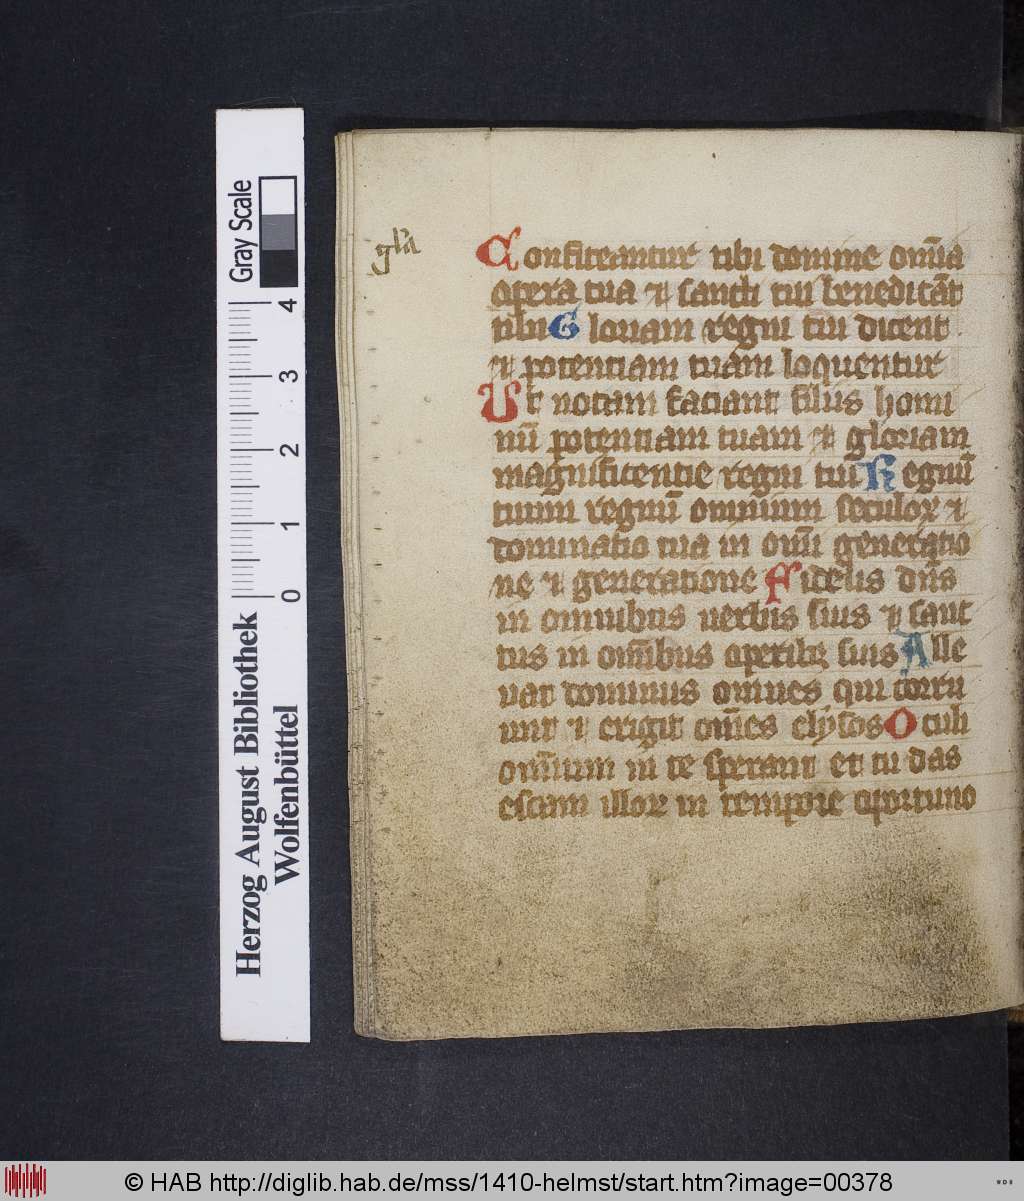 gl'a
Confiteantur tibi domine om̅ia
opera tua et sancti tui benedicãt
tibi Gloriam regni tui dicent
et potentiam tuam loquentur
Ut notam faciant filiis homi
nu̅ potentiam tuam et gloriam
magnificentie regni tui Regnu̅
tuum regnu̅ omnium seculoꝝ et
dominatio tua in om̅i generatio
ne et generatione Fidelis dn̅s
in omnibus uerbis suis et sanc
tus in om̅ibus operibꝫ suis Alle
uat dominus omnes qui corru
unt et erigit om̅es elysos Oculi
om̅ium in te sperant et tu das
escam illoꝝ in tempore oportuno
Gray Scale
4
3
2
1
0
Herzog August Bibliothek
Wolfenbüttel
© HAB http://diglib.hab.de/mss/1410-helmst/start.htm?image=00378